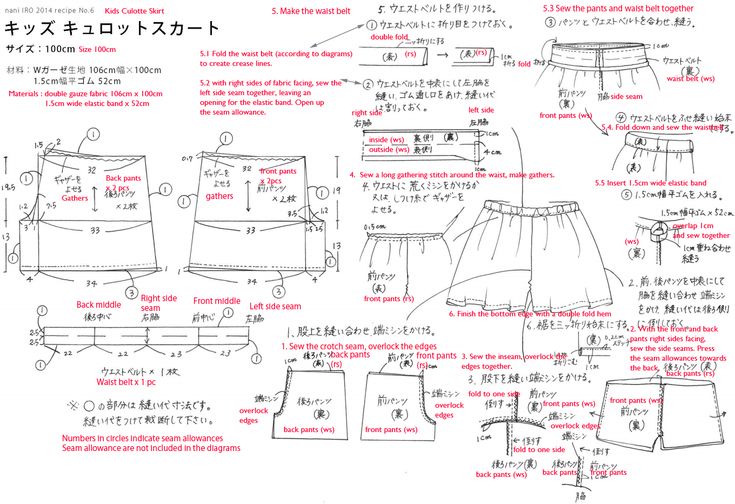 nani IRO 2014 recipe No.6 Kids Culotte Skirt
キッズ キュロットスカート
サイズ：100cm Size 100cm
材料：Wガーゼ生地 106cm幅×100cm
1.5cm幅平ゴム 52cm
Materials : double gauze fabric 106cm x 100cm
1.5cm wide elastic band x 52cm
1.5
2
32
ギャザーを
よせる
Gathers
Back pants
x 2 pcs
後ろパンツ
×2枚
18.5
1.2
7.5
3
1
33
13
4
34
3
0.7
32
ギャザーを
よせる
gathers
front pants
x 2pcs
前パンツ
×2枚
19
1.2
1
33
13
34
4
3
Back middle
後ろ中心
Right side
seam
右脇
Front middle
前中心
Left side seam
左脇
2.5
2.5
22
22
23
23
ウエストベルト × 1枚
Waist belt x 1 pc
※ ○の部分は縫い代寸法です。
縫い代をつけて裁断して下さい。
Numbers in circles indicate seam allowances
Seam allowance are not included in the diagrams
5. Make the waist belt
5.1 Fold the waist belt (according to diagrams)
to create crease lines.
5.2 with right sides of fabric facing, sew the
left side seam together, leaving an
opening for the elastic band. Open up
the seam allowance.
5. ウエストベルトを作りつける。
① ウエストベルトに折り目をつけておく。
double fold
(表) (rs)
(表) (rs)
1cm
折る
② ウエストベルトを中表にして左脇を
縫い、ゴム通し口をあけ、縫い代を
割りておく。
right side
右脇
left side
左脇
inside (ws) 裏側 (裏)
outside (ws) 表側
1cm
4cm
1cm
4. Sew a long gathering stitch around the waist, make gathers.
4. ウエストに荒くミシンをかけるか
又は、しつけ糸でギャザーを
よせる。
0.5cm
前パンツ
(表)
front pants (rs)
5.3 Sew the pants and waist belt together
③ パンツとウエストベルトを合わせ、縫う。
1cm
ウエストベルト
(裏)
waist belt (ws)
前パンツ
(裏)
front pants (ws)
脇 side seam
④ ウエストベルトをふせ縫い始末
する。
5.4. Fold down and sew the waist
(表)
5.5 Insert 1.5cm wide elastic band
⑤ 1.5cm幅平ゴムを入れる。
1.5cm幅平ゴム×52cm
overlap 1cm
and sew together
1cm重ね合わせ
縫う
(ws)
(裏)
前パンツ
(表)
front pants (rs)
6. Finish the bottom edge with a double fold hem
6. 裾を三ッ折り始末する。
(裏)
2. 前、後パンツを中表にして
脇を縫い合わせ 端ミシン
をかけ 縫い代は後ろ側
に倒しておく
2. With the front and back
pants right sides facing,
sew the side seams. Press
the seam allowances towards
the back.
後ろパンツ(表)
back pants (rs)
前パンツ
(裏)
front pants (ws)
1. 股上を縫い合わせ 端ミシンをかける。
1. Sew the crotch seam, overlock the edges
1cm
後ろパンツ(表)
back pants
(rs)
端ミシン
overlock
edges
後ろパンツ
(裏)
back pants (ws)
前パンツ
(表)
front pants
(rs)
1cm
前パンツ
(裏)
front pants (ws)
端ミシン
overlock
edges
3. Sew the inseam, overlock the
edges together.
3. 股下を縫い端ミシンをかける。
fold to one side
倒す
前パンツ
(裏)
front pants (ws)
端ミシン
overlock
edges
1cm
倒す
fold to one side
後ろパンツ
(裏)
back pants (ws)
前パンツ(裏)
front pants (ws)
端ミシン
overlock
edges
1cm
後ろパンツ(表)
back pants (rs)
脇